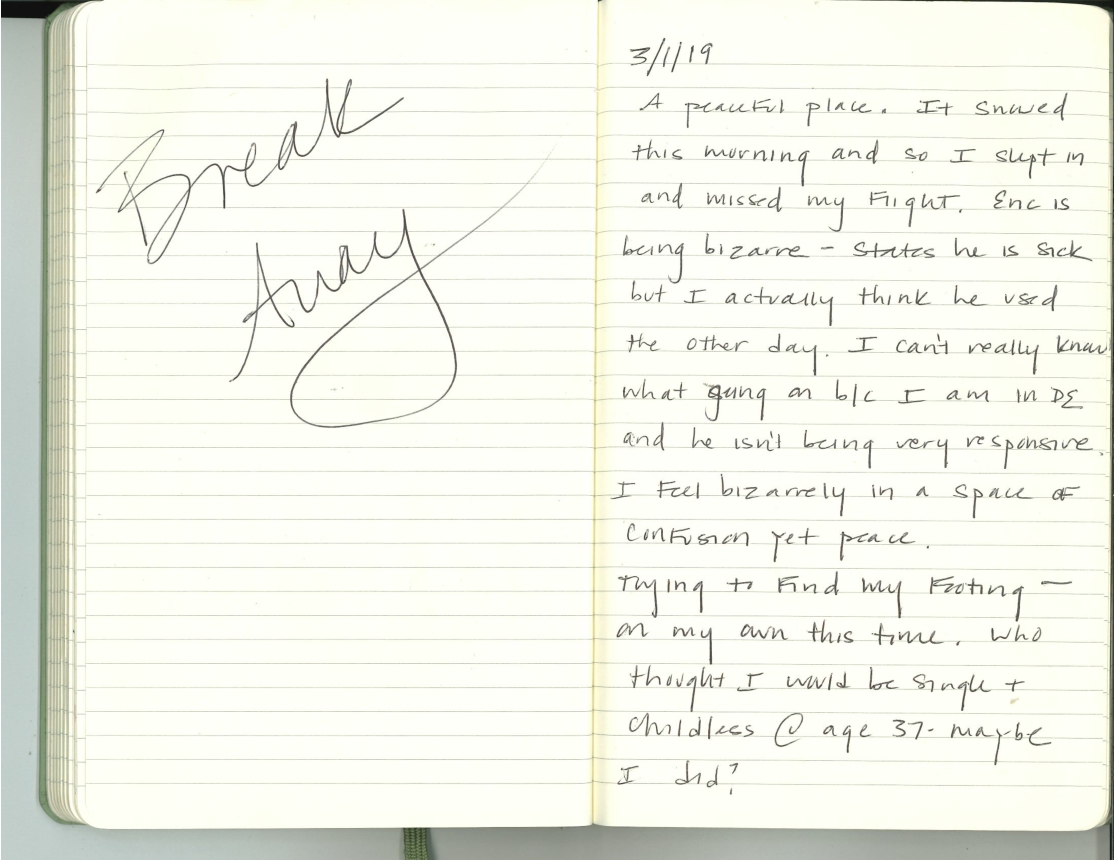 Break
Away
3/1/19
A peaceful place. It snowed
this morning and so I slept in
and missed my flight. Eric is
being bizarre - states he is sick
but I actually think he used
the other day. I can't really know
what going on b/c I am in DE
and he isn't being very responsive.
I feel bizarrely in a space of
confusion yet peace.
Trying to find my footing —
on my own this time. Who
thought I would be single +
childless @ age 37- maybe
I did?